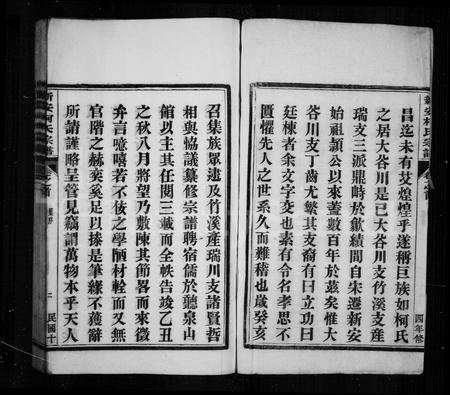 昌迄未有艾煌煌乎遂稱巨族如柯氏
之居大谷川是已大谷川支竹溪支產
瑞支三派鼎峙於歙績間自宋遷新安
始祖穎公以來蓋數百年於茲矣惟大
谷川支丁齒尤繁其支裔有曰立功曰
廷棟者余文字交也素有令名孝思不
匱懼先人之世系久而難稽也歲癸亥
新安柯氏宗譜
卷首
四年修
召集族眾逮及竹溪產瑞川支諸賢哲
相與協議纂修宗譜聘宿儒於聽泉山
館以主其任閱三載而全帙告竣乙丑
之秋八月將望乃敷陳其節畧而來徵
弁言噫嘻若不佞之學陋材輇而又無
官階之赫奕奚足以揍是筆緣不獲辭
所請謹略呈管見竊謂萬物本乎天人
新安柯氏宗譜
卷首
序
二
民國十